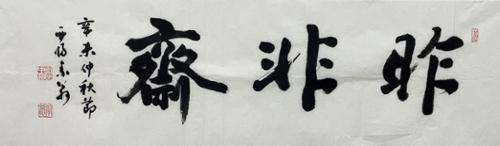 昨非齋
辛未仲秋節